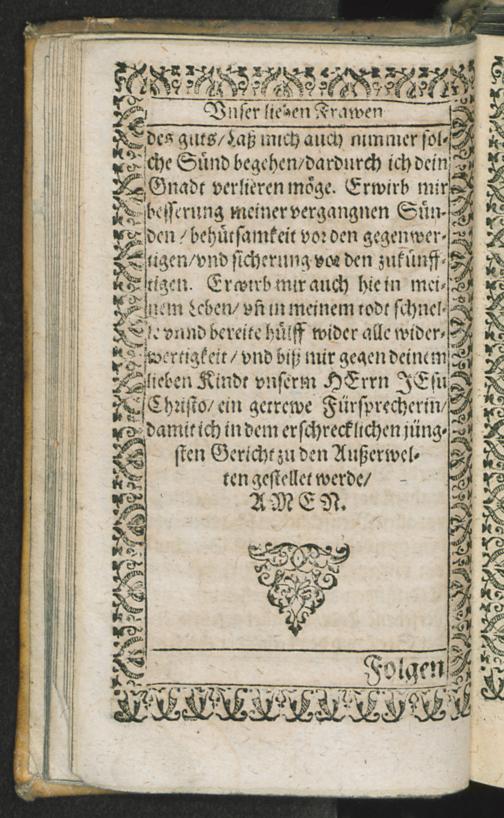 Vnser lieben Frawen
des guts/Laß mich auch nimmer sol-
che Sünd begehen/dardurch ich dein
Gnadt verlieren möge. Erwirb mir
besserung meiner vergangnen Sün-
den / behütsamkeit vor den gegenwer-
tigen/vnd sicherung vor den zukünff-
tigen. Erwirb mir auch hie in mei-
nem Leben/ vñ in meinem todt schnel-
le vnnd bereite hülff wider alle wider-
wertigkeit / vnd biß mir gegen deinem
lieben Kindt vnserm HErrn JEsu
Christo/ ein getrewe Fürsprecherin/
damit ich in dem erschrecklichen jüng-
sten Gericht zu den Außerwel-
ten gestellet werde/
AMEN.
Folgen